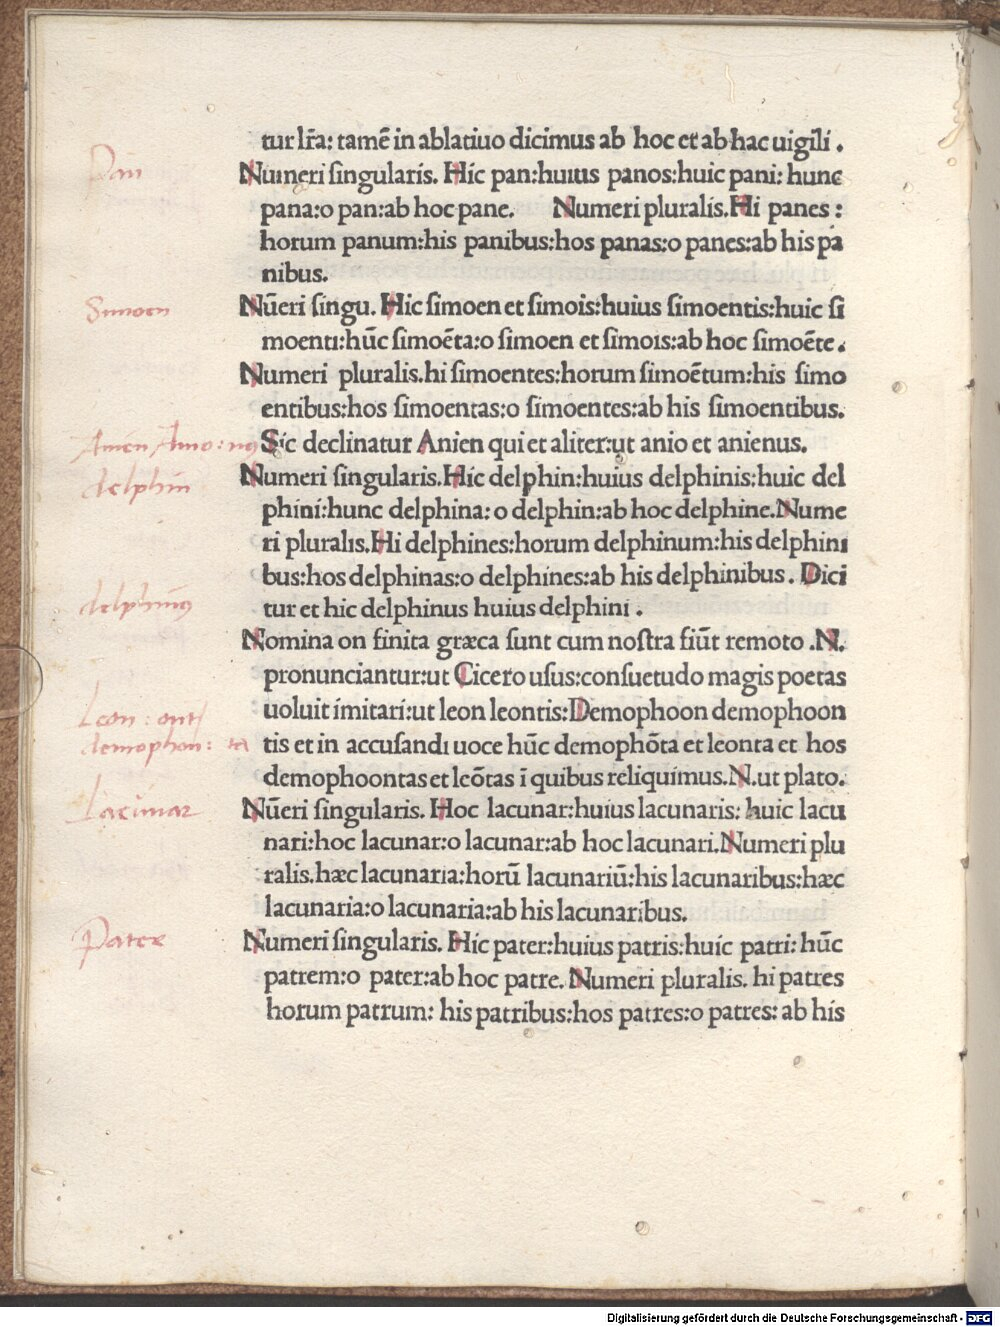 tur lr̄a: tamē in ablatiuo dicimus ab hoc et ab hac uigili .
Pan
Numeri ſingularis. Hic pan:huius panos:huic pani: hunc
pana:o pan:ab hoc pane. Numeri pluralis. Hi panes :
horum panum:his panibus:hos panas:o panes:ab his pa
nibus.
Simoen
Nūeri ſingu. Hic ſimoen et ſimois:huius ſimoentis:huic ſi
moenti:hūc ſimoēta:o ſimoen et ſimois:ab hoc ſimoēte.
Numeri pluralis.hi ſimoentes:horum ſimoētum:his ſimo
entibus:hos ſimoentas:o ſimoentes:ab his ſimoentibus.
Sic declinatur Anien qui et aliter:ut anio et anienus.
delphin
Numeri ſingularis.Hic delphin:huius delphinis:huic del
phini:hunc delphina: o delphin:ab hoc delphine.Nume
ri pluralis.Hi delphines:horum delphinum:his delphini
bus:hos delphinas:o delphines:ab his delphinibus. Dici
delphinus
tur et hic delphinus huius delphini .
Nomina on finita græca ſunt cum noſtra fiūt remoto .N.
pronunciantur:ut Cicero uſus:conſuetudo magis poetas
Leon: ont
uoluit imitari:ut leon leontis:Demophoon demophoon
demophon: ta
tis et in accuſandi uoce hūc demophōta et leonta et hos
demophoontas et leōtas ī quibus reliquimus.N.ut plato.
Lacunar
Nūeri ſingularis. Hoc lacunar:huius lacunaris: huic lacu
nari:hoc lacunar:o lacunar:ab hoc lacunari.Numeri plu
ralis.hæc lacunaria:horū lacunariū:his lacunaribus:hæc
lacunaria:o lacunaria:ab his lacunaribus.
Pater
Numeri ſingularis. Hic pater:huius patris:huic patri: hūc
patrem:o pater:ab hoc patre. Numeri pluralis. hi patres
horum patrum: his patribus:hos patres:o patres: ab his
Digitalisierung gefördert durch die Deutsche Forschungsgemeinschaft - DFG